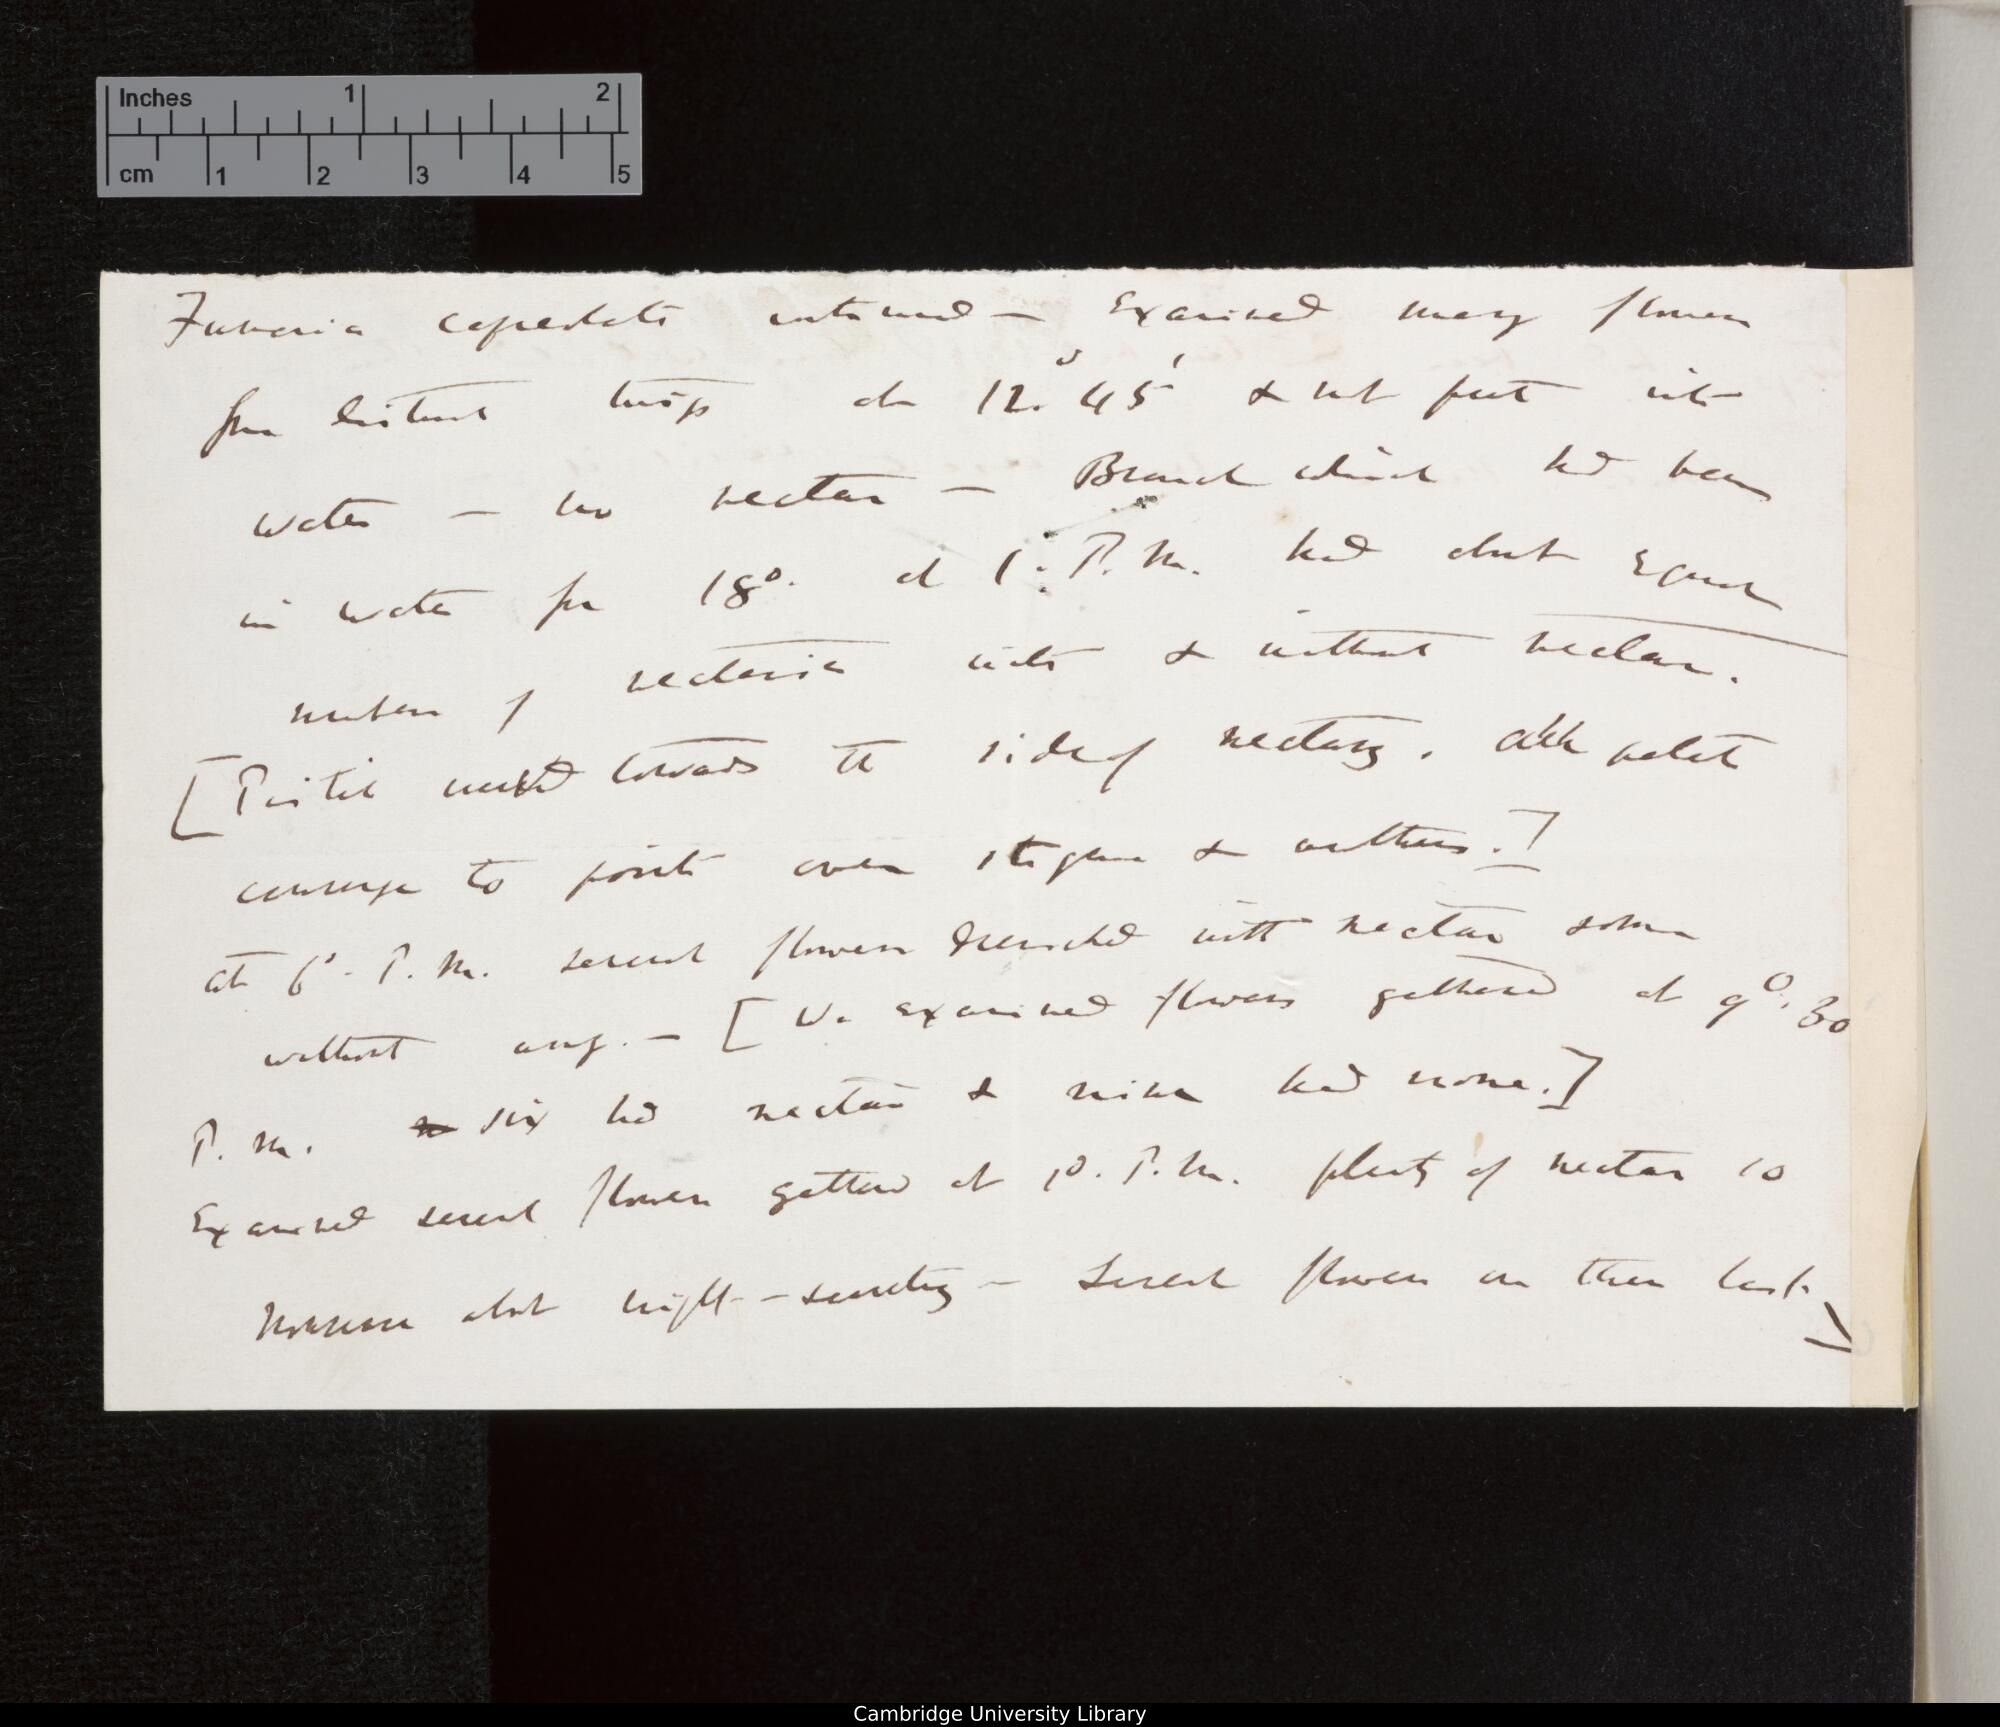 Inches 1 2
cm 1 2 3 4 5
Fumaria capreolata continued — Examined many flowers
from distinct twigs at 12.° 45' & not put into
water — no nectar — Branch which had been
in water for 18°. at 1°. P.M. had about equal
number of nectaries with & without nectar.
[Pistil towards the side of nectary, all petals
converge to point over stigma & anthers.]
at 6°. P.M. several flowers drenched with nectar some
without any. — [We examined flowers gathered at 9°. 30
P.M. six had nectar & nine had none.]
Examined several flowers gathered at P.M. plenty of nectar so
nonsense about night-secreting — Several flowers on
Cambridge University Library